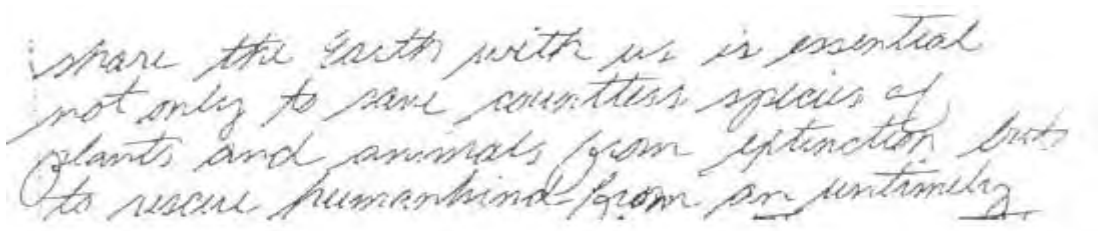 share the Earth with us is essential
not only to save countless species of
plants and animals from extinction but
to rescue humankind from an untimely